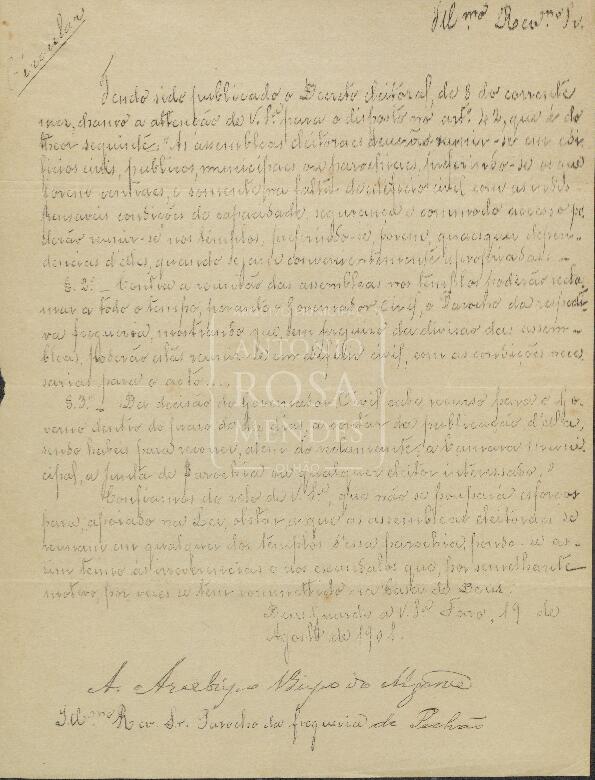 Circular
Ill.mo Rev.mo Sr.
Tendo sido publicado o Decreto eleitoral, de 8 do corrente
mez, chamo a attenção de V. S.ª para o disposto no art.º 42, que é do
theor seguinte: "As assembleas eleitoraes deverão reunir-se em edi-
ficios civis, publicos, municipaes ou parochiaes, preferindo-se os que
forem centraes, e somente na falta de edificio civil com as indis-
pensaveis condições de capacidade, segurança e commodo accesso po-
derão reunir-se nos templos, preferindo-se, porem, quaesquer depen-
dencias d'elles, quando sejam convenientemente apropriadas. –
§. 2.º – Contra a reunião das assembleas nos templos poderão recla-
mar a todo o tempo, perante o Governador Civil, o Parocho da respecti-
va freguezia, mostrando que, sem prejuizo da divisão das assem-
bleas, poderão estas reunir-se em edificio civil, com as condições neces-
sarias para o acto....
§. 3.º – Da decisão do Governador Civil cabe recurso para o Go-
verno dentro do praso de dias, a contar da publicação d'ella,
sendo habeis para recorrer, alem do reclamante, a Camara Munici-
cipal, a junta de Parochia ou qualquer eleitor interessado."
Confiamos do zelo de V. S.ª, que não se poupará esforços
para, apoiado na Lei, obstar a que as assembleas eleitoraes se
reunam em qualquer dos templos d'essa parochia, pondo-se as-
sim termo ás irreverencias e aos escandalos que, por semelhante
motivo, por vezes se tem commettido na Casa de Deus.
Deus Guarde a V. S.ª Faro, 19 de
Agosto de 1901.
A. Arcebispo Bispo do Algarve
Ill.mo Rev. Sr. Parocho da freguezia de Pechão
ANTONIO
ROSA
MENDES
OLHÃO